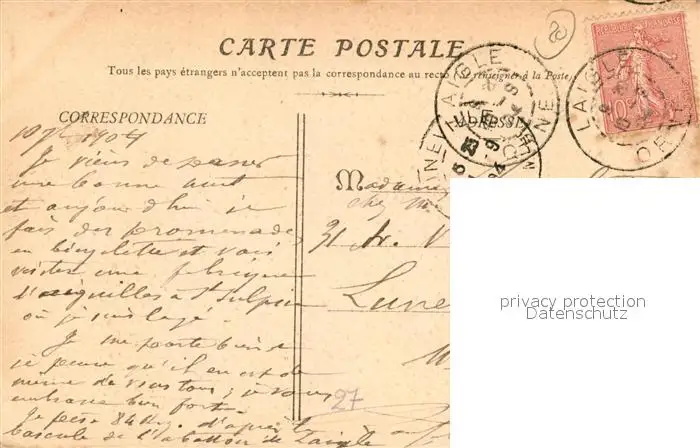 CARTE POSTALE
Tous les pays étrangers n'acceptent pas la correspondance au recto (se renseigner à la Poste)
CORRESPONDANCE
1904
Je viens de passer
une bonne nuit
et aujourd'hui je
fais des promenades
en bicyclette et vais
visiter une fabrique
d'aiguilles à St Sulpice
où je suis logé.
Je me porte bien et
je pense qu'il en est de
même de vous tous ; je vous
embrasse bien fort.
Je pèse 84 Kg. d'après la
bascule de l'abattoir de Laigle
Madame
chez M
31
Lune
27
REPUBLIQUE FRANÇAISE
10
LAIGLE
ORNE
LAIGLE
ORNE
privacy protection
Datenschutz